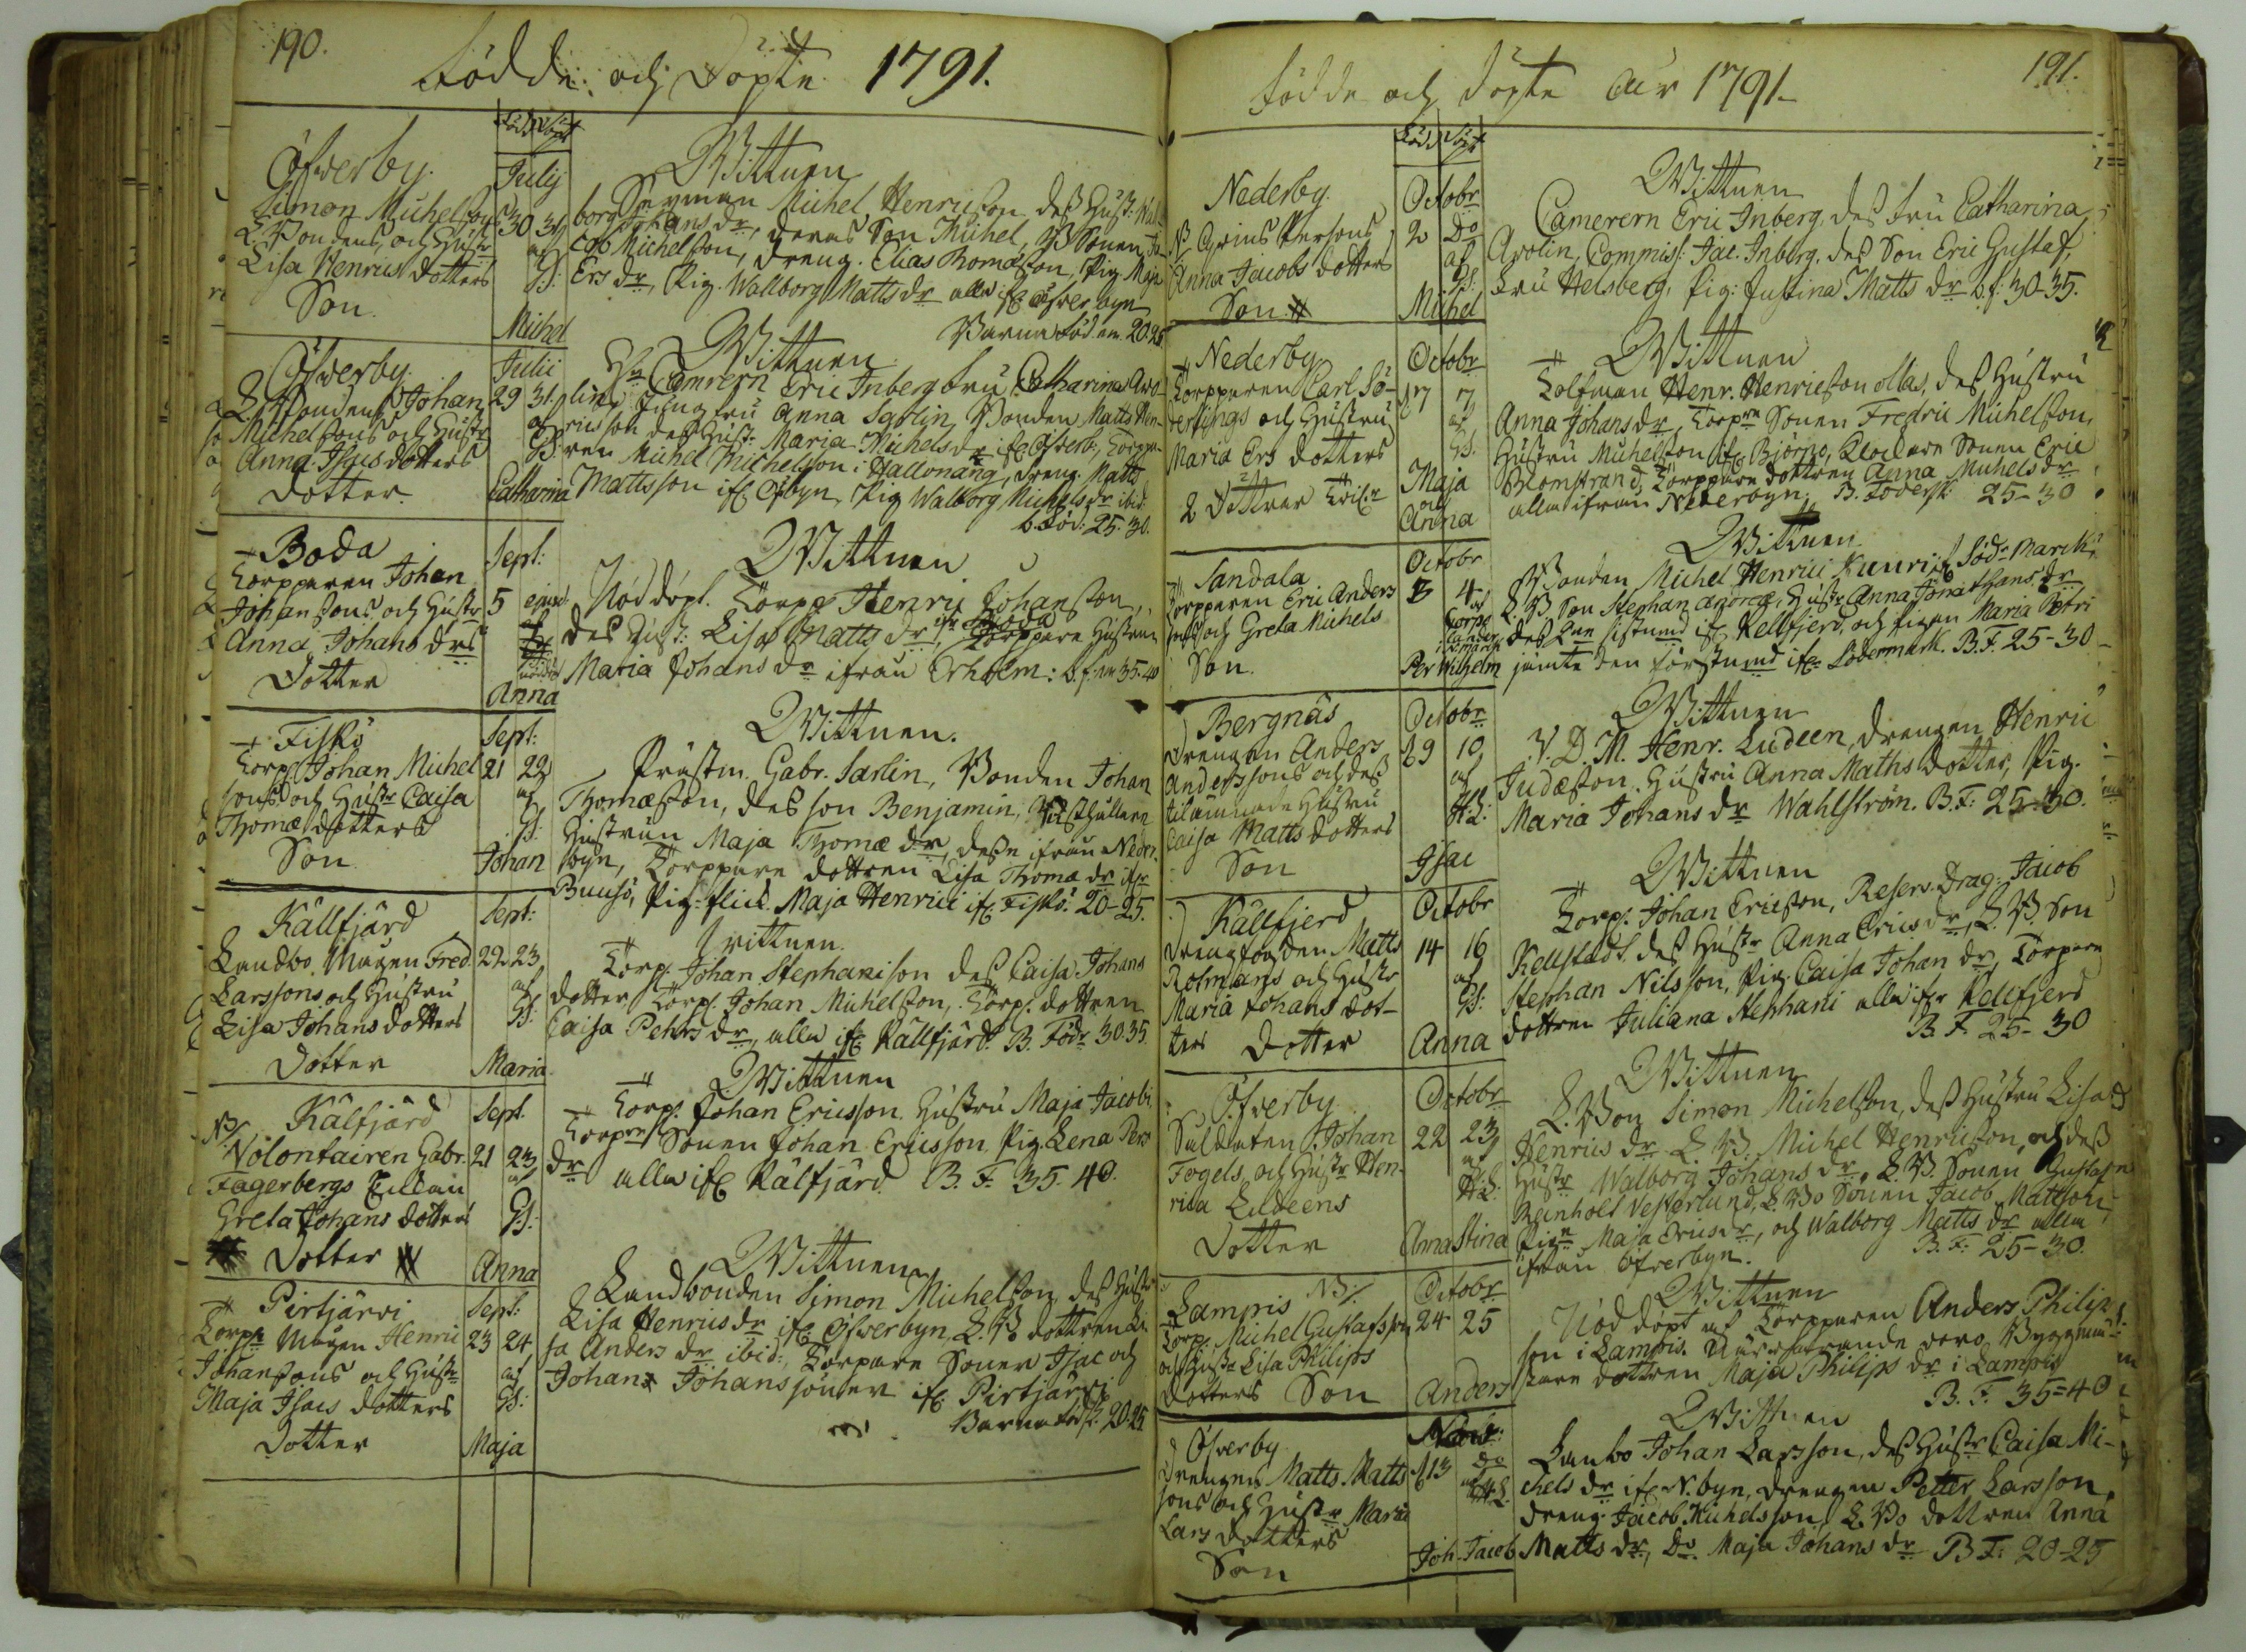 190.
Födde och Döpte 1791.
Född Döpt
Öfverby.
Simon Michelsons
L. Bondens, och Hustr
Lisa Henrics dotters
Son.
Julij
30 31
af
GS:
Michel
Wittnen
Michel Henricson, des Hust: Wal
borg Johans dr, deras Son Michel, B Sonen Ja
cob Michelson, dreng. Elias Thomason, Pig. Maja
Ers dr, Pig. Wallborg Matts dr alla ifr öfver byn
Barna föd. em. 20-25
Öfverby.
L. Bondens Johan
Michelsons och Hustr
Anna Isacs dotters
dotter.
Julii
29 31
af
GS.
Catharina
Wittnen
Hr Camrern Eric Inberg fru Catharina Aro-
lin, fru Anna Sarlin, Bonden Matts Hen-
ricsson des Hust. Maria Michels dr ifr öfverb:, Torpa-
ren Michel Michelson i Hallonäng, dreng. Matts
Mattsson ifr öfbyn, Pig Walborg Michels dr ibid.
b. Föd: 25-30.
Boda
Torpparen Johan
Johansons och Hustr
Anna Johans drs
Dotter
Sept:
5 ejusd.
Anna
Wittnen
Nöd döpt. Torpp Henric Johanson,
des Hust: Lisa Matts dr ifr Boda, Torppare Hustrun
Maria Johans dr ifrån Erholm: b. f. em 35-40
Fiskö
Torp. Johan Michel
sons och Hustr Caisa
Thomæ dotters
Son
Sept:
21 22
af
GS:
Johan
Wittnen.
Prästm. Gabr. Sarlin, Bonden Johan
Thomæson, des son Benjamin,
Hustrun Maja Thomæ dr, desse ifrån Neder
byn, Torppare dottren Lisa Thomæ dr ifr
Buusö, Pig. flick. Maja Henrici ifr Fiskö. 20-25.
Källfjärd
Landbo Mågen Fred.
Larssons och Hustru
Lisa Johans dotters
Dotter
Sept:
22 23
af
GS:
Maria
Wittnen.
Torp. Johan Stephanison des Caisa Johans
dotter, Torp. Johan Michelson, Torp. dottren
Caisa Pehrs dr, alla ifr Källfjärd. B. Födr 30-35.
NB/. Kälfjärd
Volontairen Gabr.
Fagerbergs Enkan
Greta Johans dotters
Dotter
Sept.
21 23
af
GS:
Anna
Wittnen
Torp. Johan Ericsson. Hustru Maja Jacobi
Torpare Sonen Johan Ericsson, Pig. Lena Pers
dr alla ifr Källfjärd. B. F. 35-40.
Pirtjärvi
Torpr Mågen Henric
Johansons och Hustr
Maja Isacs dotters
Dotter
Sept:
23 24
af
GS:
Maja
Wittnen
Landbonden Simon Michelson des Hustr
Lisa Henrics dr ifr Öfverbyn, L. B. dottren Li
sa Anders dr ibid:, Torpare Soner Isac och
Johan Johanssöner ifr Pirtjärvi
Barna födsl. 20-25
191.
Födde och döpte Åhr 1791.
Född Döpt
Nederby
Anna Jacobs dotters
Son
Octobr
2 Do
af
GS:
Michel
Wittnen
Camerern Eric Inberg, des fru Catharina
Arolin, Commiss: Jac. Inberg, des Son Eric Gustaf,
Fru Helsberg, Pig: Justina Matts dr b. f: 30-35.
Nederby
Torpparen Carl Sö-
derlings och Hustru
Maria Ers dotters
2 Döttrar
Octobr
7
af
GS.
Maja
och
Anna
Wittnen
Henr. Henricson ollas, des Hustru
Anna Johans dr, Torpre Sonen Fredric Michelson,
Hustru Michelson ifr Björnö, Klockare Sonen Eric
Blomstrand, Torppare dottren Anna Michels dr
alla ifrån Nederbyn. B. Födersk: 25-30
Sandala
Torpparen Eric Anders
sons och Greta Michels
Son.
Octobr
3 4
Per Wilhelm
Wittnen
Bonden Michel Henrici Kuuri ifr Södr Marck,
L B Son Stephan Andreæ, Hustr Anna Jonathans dr
des 2ne sistnemd ifr Kellfjerd, och pigan Maria Petri
jämte den förstnemd ifr Södermark. B. F. 25-30
Bergnäs
Drengen Anders
Anderssons och des
tilämnade Hustru
Caisa Matts dotters
Son
Octobr
29 10
af
H.L:
Isac
Wittnen
V. D. M. Henr. Ludeen, drengen Henric
Judæson. Hustru Anna Maths dotter, Pig.
Maria Johans dr Wahlström. B. F: 25-30.
Källfjerd
Matts
Rotmans och Hustr
Maria Johans dot-
ters Dotter
Octobr
14 16
af
GS:
Anna
Wittnen
Torp. Johan Ericson, Reserv. Drag. Jacob
Kellstedt. des Hustr Anna Erics dr, L. B. Son
Stephan Nilsson, Pig. Caisa Johan dr, Torpare
dottren Juliana Stephani alla ifr Kellfjerd
B. F. 25-30
Öfverby
Soldaten Johan
Fogels och Hustr Hen-
rica Ludeens
Dotter
Octobr
22 23
af
H.L:
Anna Stina
Wittnen
L. Bon Simon Michelson, des Hustru Lisa
Henrics dr L. B. Michel Henricson, och des
Hustr Walborg Johans dr, L. B. Sonen Gustaf
Reinhold Vesterlund, L. Bo Sonen Jacob Mattson,
Pign Maja Erics dr, och Walborg Matts dr alla
ifrån Öfverbyn. B. F: 25-30.
Lampis NB/.
Torp. Michel Gustafsson
och Hustr Lisa Philips
dotters Son
Octobr
24 25
Anders
Wittnen
Nöd döpt af Torpparen Anders Philip
son i Lampis. Närvarande voro, Byggmä-
stare dottren Maja Philips dr i Lampis
B. F. 35-40
Öfverby
Drengen Matts Matts
sons och Hustr Maria
Lars dotters
Son
Nov:
13 do
af
H.L.
Joh. Jacob
Wittnen
Lanbo Johan Larsson, des Hustr Caisa Mi-
chels dr ifr N. byn, drengen Petter Larsson,
dreng. Jacob Michelsson, L. Bo dottren Anna
Matts dr, Do Maja Johans dr B F: 20-25